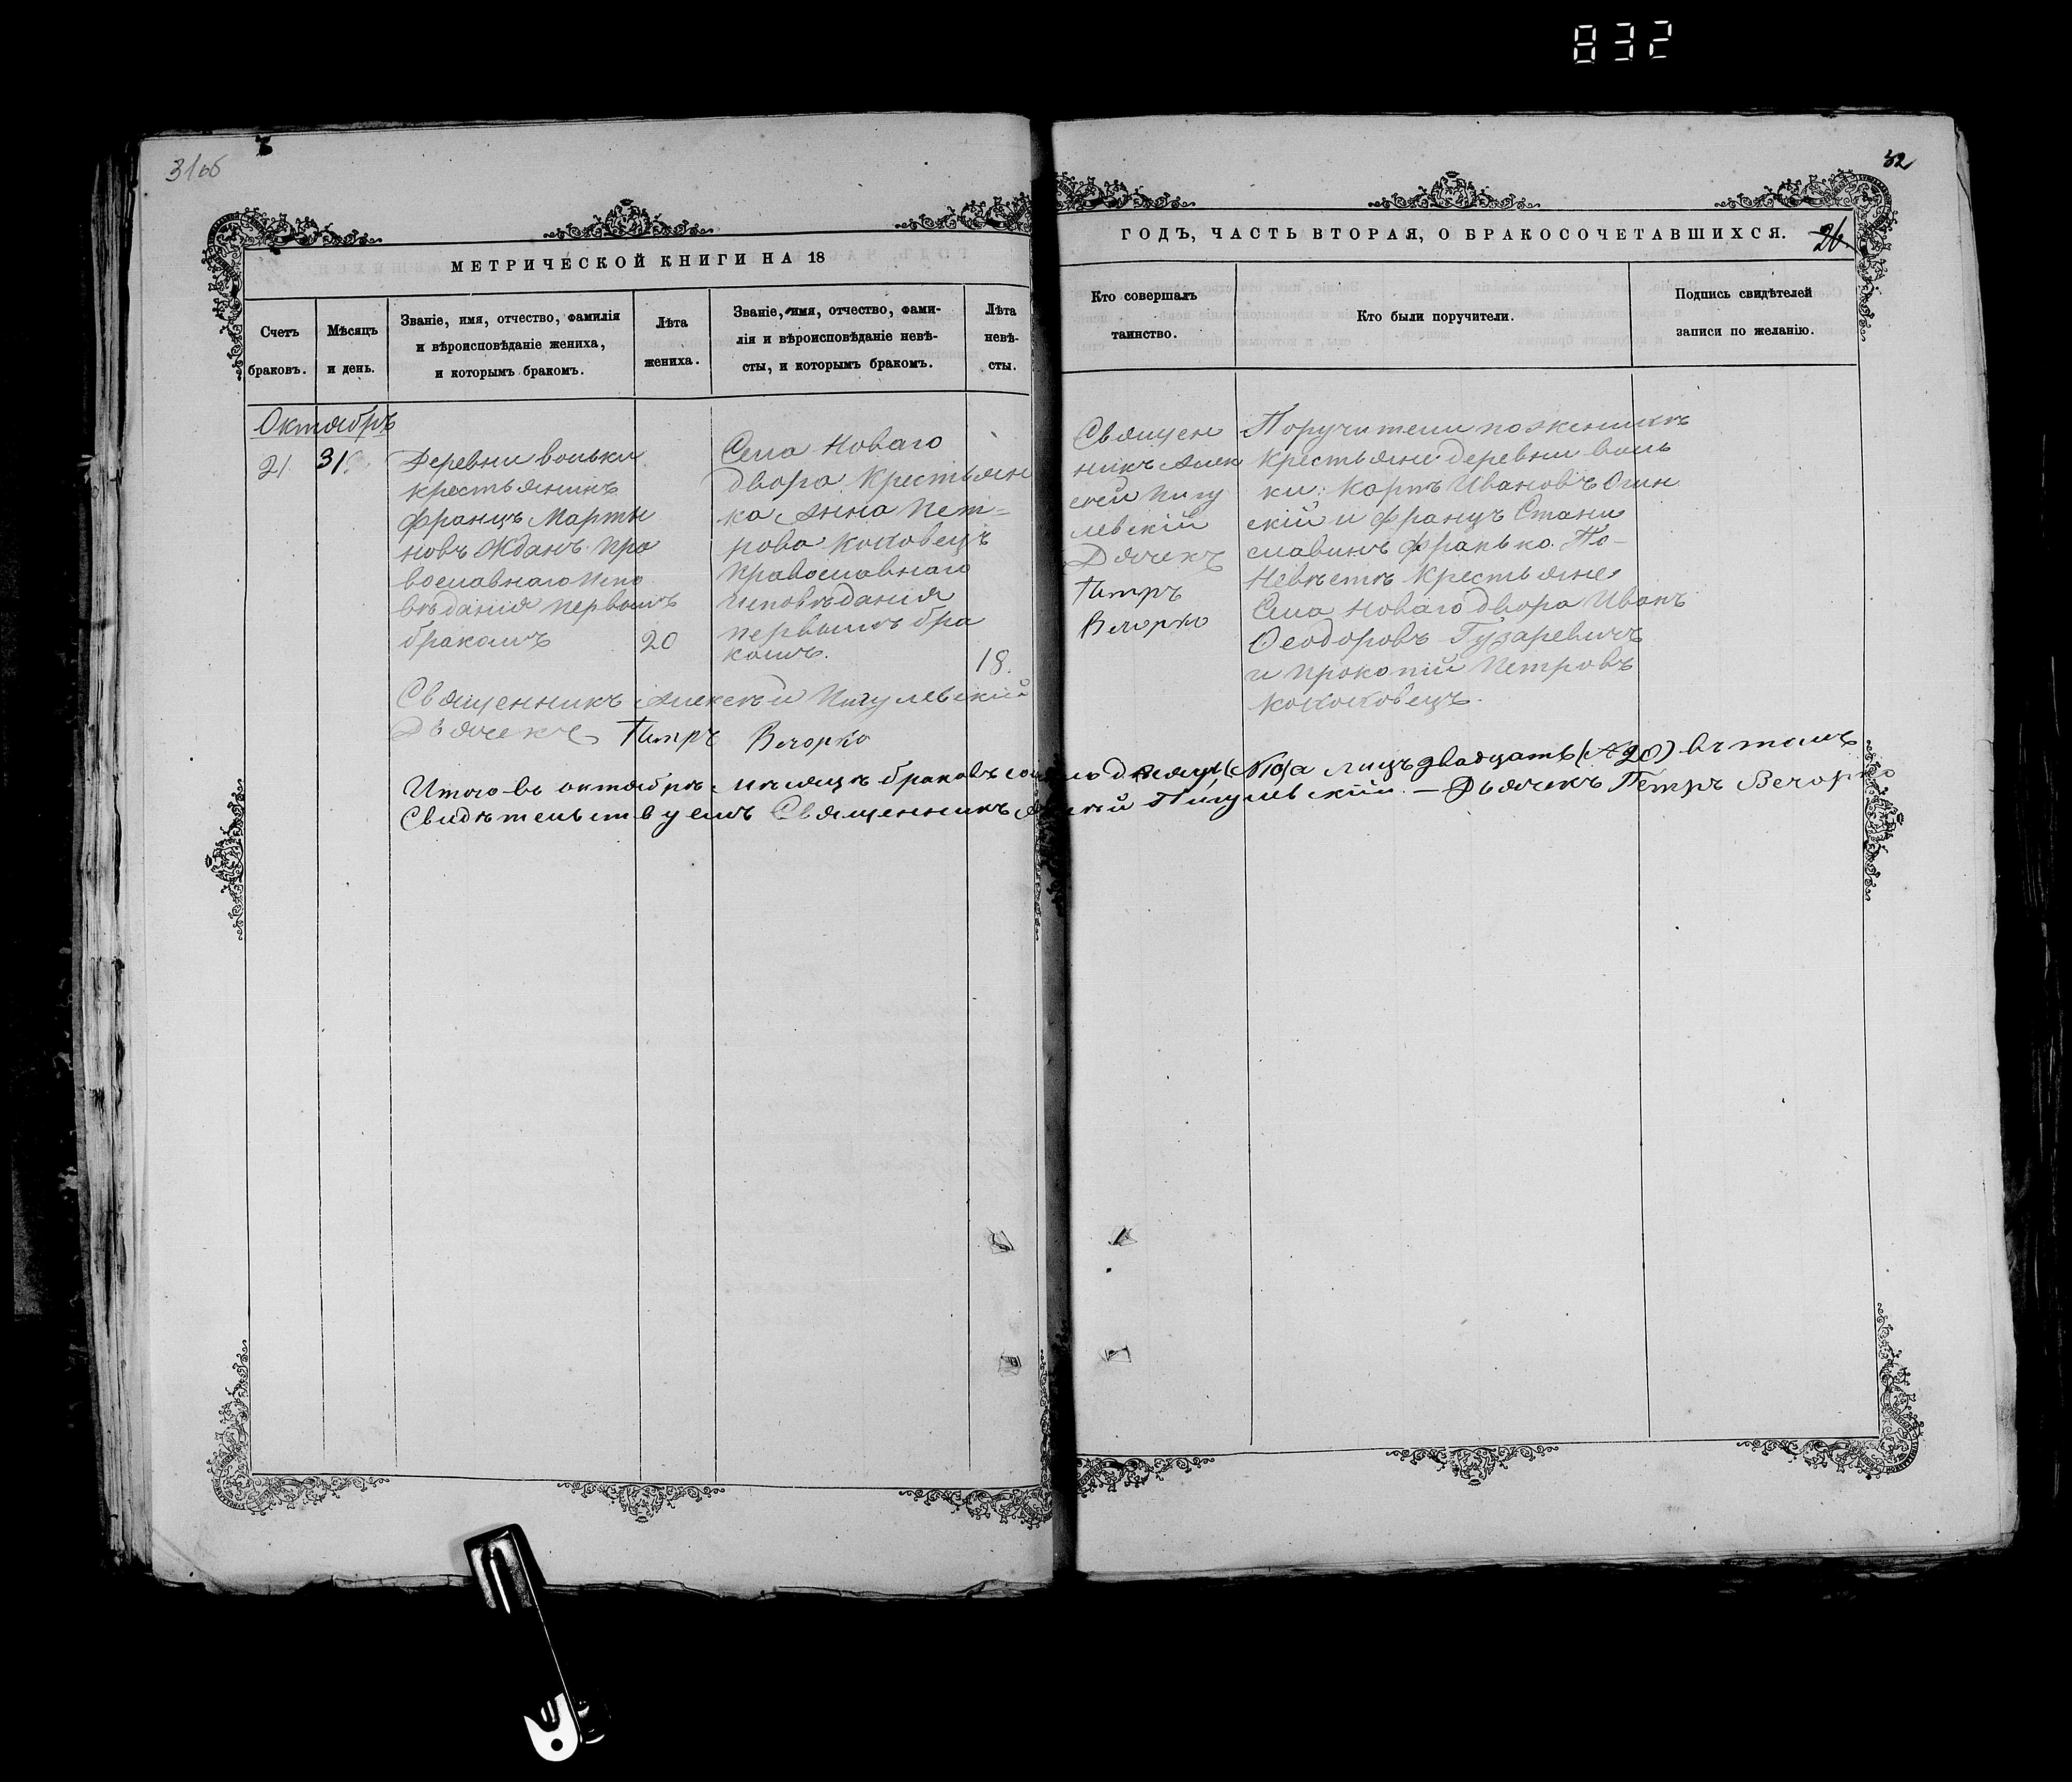 832
31об
32
МЕТРИЧЕСКОЙ КНИГИ НА 18
ГОДЪ, ЧАСТЬ ВТОРАЯ, О БРАКОСОЧЕТАВШИХСЯ.
26
Счетъ
браковъ.
Мѣсяцъ
и день.
Званіе, имя, отчество, фамилія
и вѣроисповѣданіе жениха,
и которымъ бракомъ.
Лѣта
жениха.
Званіе, имя, отчество, фами-
лія и вѣроисповѣданіе невѣ-
сты, и которымъ бракомъ.
Лѣта
невѣ-
сты.
Кто совершалъ
таинство.
Кто были поручители.
Подпись свидѣтелей
записи по желанію.
Октябрь
21
31
Деревни Вольки
крестьянинъ
Францъ Марты
новъ Жданъ пра
вославнаго испо
вѣданія первымъ
бракомъ
20
Села Новаго
двора Крестьян
ка Анна Пет-
рова
православнаго
исповѣданія
первымъ бра
комъ.
18.
Священникъ Алексѣй Пигулевскій
Дьячекъ Петръ Вечорко
Священ
никъ Алек
сѣй Пигу
левскій
Дьячекъ
Петръ
Вечорко
Поручители по женихѣ
Крестьяне деревни Воль
ки: Карпъ Ивановъ Огин
скій и Францъ Стани
славинъ Франько. По-
Невѣстѣ Крестьяне
Села Новаго двора Иванъ
Ѳеодоровъ Гузаревичъ
и Прокопій Петровъ
Итого въ октябрѣ мѣсяцѣ браковъ (№10) а лицъ двадцать (№20) въ томъ
Свидѣтельствуемъ Священникъ Пигулевскій. — Дьячекъ Петръ Вечорко